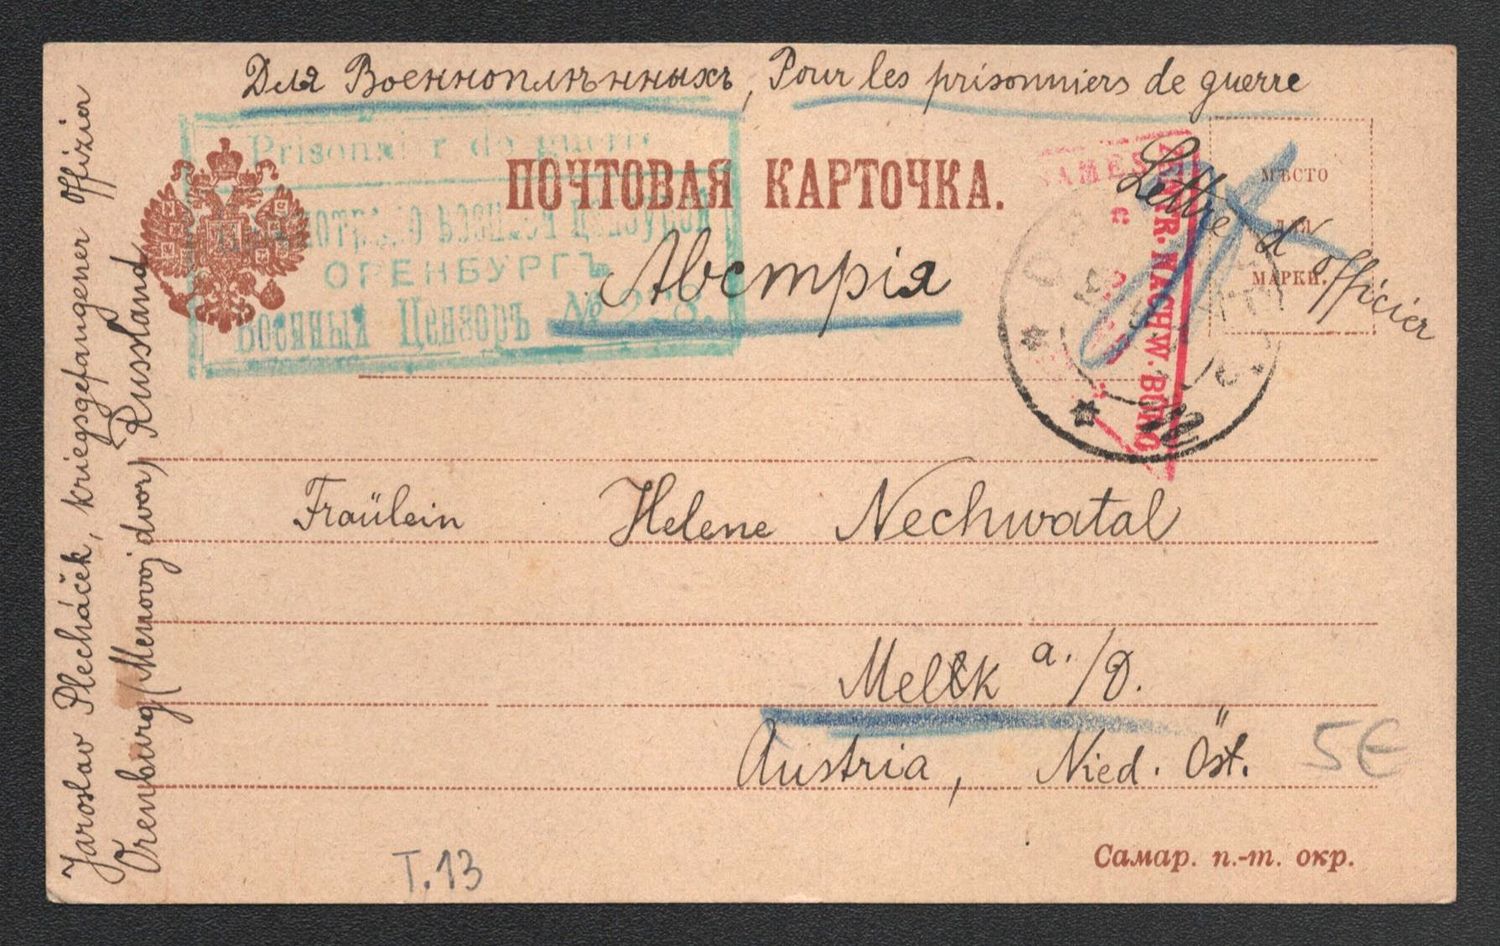 Для Военноплѣнныхъ, Pour les prisonniers de guerre
Prisonnier de guerre
ПОЧТОВАЯ КАРТОЧКА.
военной Цензурой
ОРЕНБУРГЪ
Военный Цензоръ № 228.
Австрія
Lettre d'officier
МѢСТО
ДЛЯ
МАРКИ.
ZENTR. NACHW. BÜRO
Fräulein Helene Nechwatal
Melk a./D.
Austria, Nied. Öst.
5€
Самар. п.-т. окр.
T.13
Jaroslav Plecháček, kriegsgefangener Offizier
Orenburg (Menovoj dvor) Russland